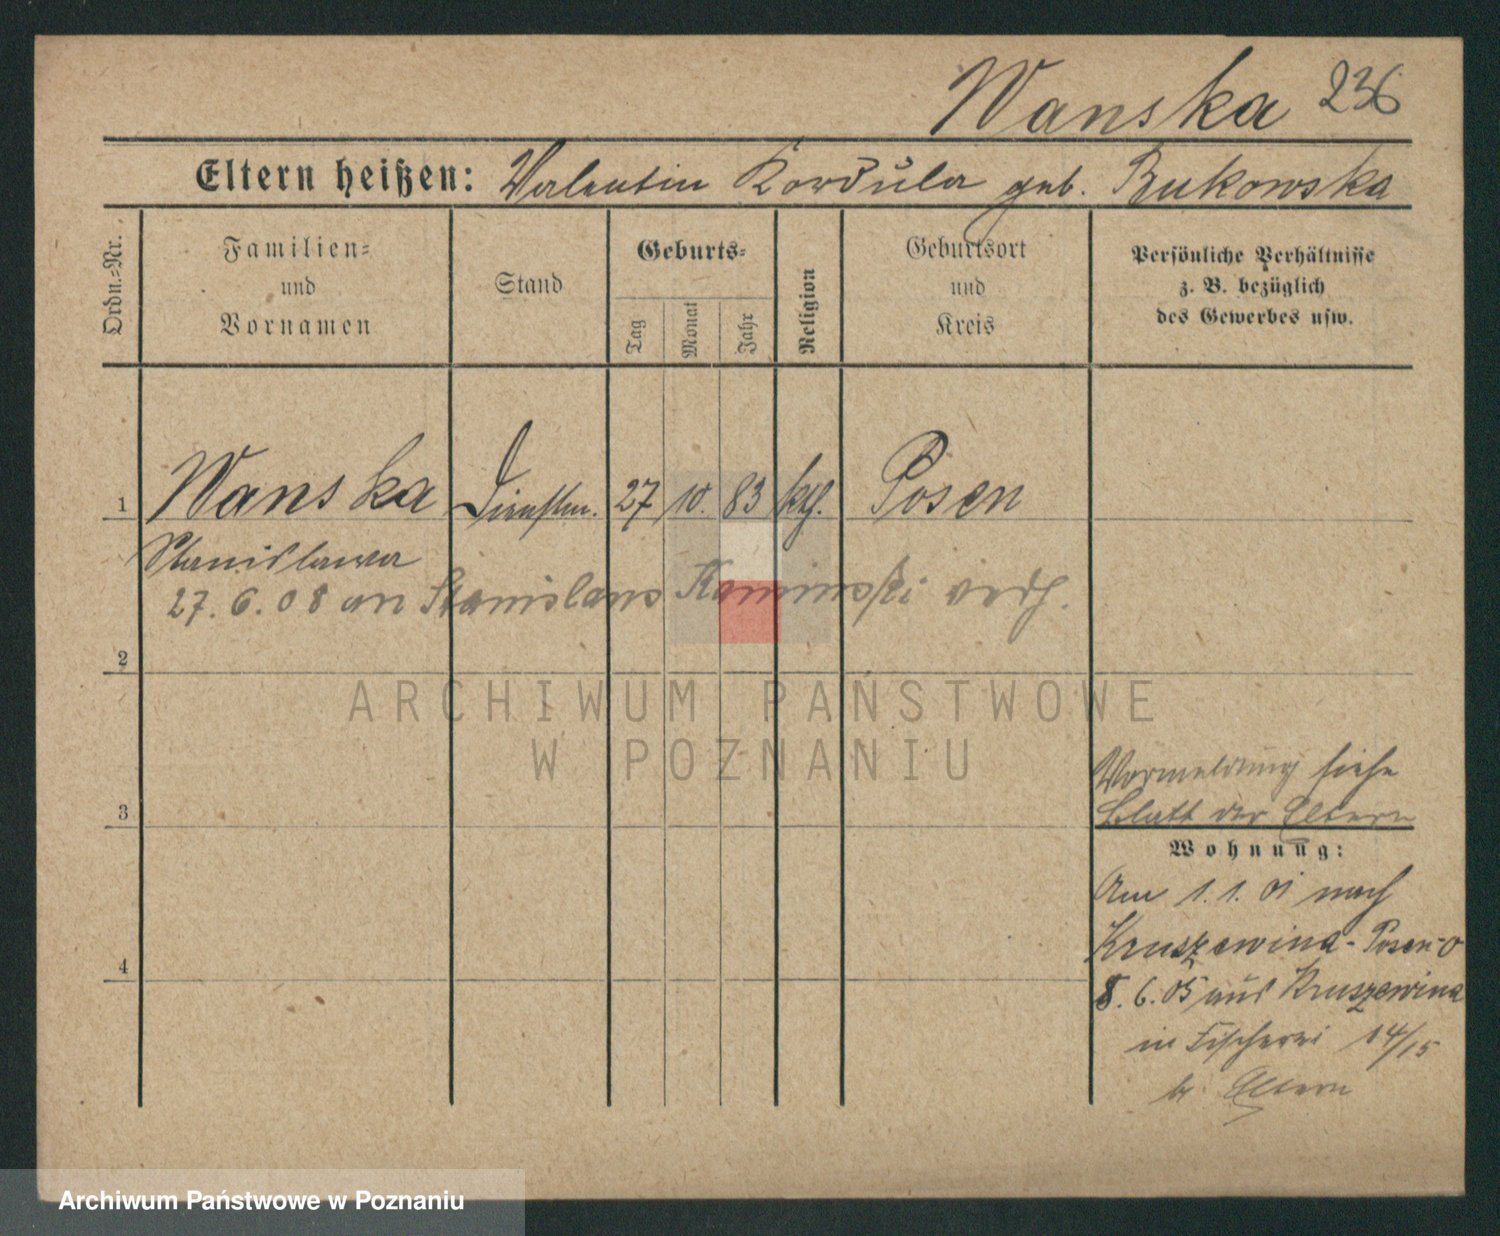 Wanska 236
Eltern heißen: Valentin Kordula geb. Bukowska
Ordn.-Nr.
Familien-
und
Vornamen
Stand
Geburts-
Tag
Monat
Jahr
Religion
Geburtsort
und
Kreis
Persönliche Verhältnisse
z. B. bezüglich
des Gewerbes usw.
1 Wanska Dienstm. 27 10. 83 kth. Posen
Stanislawa
27. 6. 08 an Stanislaus Kaminski verh.
2
ARCHIWUM PAŃSTWOWE
W POZNANIU
Vormeldung siehe
3
Blatt der Eltern
Wohnung:
Am 1. 1. 01 nach
Kruszewina - Posen-O
4
8. 6. 05 aus Kruszewina
in Fischerei 14/15
b. Eltern
Archiwum Państwowe w Poznaniu